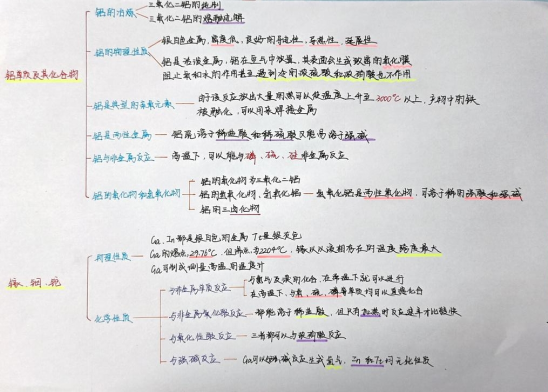 铝单质及其化合物
铝的冶炼
三氧化二铝的纯制
三氧化二铝的熔融电解
铝的物理性质
银白色金属,密度低,良好的导电性,导热性,延展性
铝是活泼金属,铝在空气中放置,其表面会生成致密的氧化膜
阻止氧和水的作用甚至遇到冷的浓硫酸和浓硝酸也不作用
铝是典型的亲氧元素
由于该反应放出大量的热可以使温度上升至3000℃以上,产物中的铁
被熔化,可以用来焊接金属
铝是两性金属
铝能溶于稀盐酸和稀硫酸又能易溶于强碱
铝与非金属反应
高温下,可以能与磷、硫、硅非金属反应
铝的氧化物和氢氧化物
铝的氧化物为三氧化二铝
铝的氢氧化物,氢氧化铝
氢氧化铝是两性氧化物,可溶于稀的强酸和强碱
铝的三卤化物
镓、铟、铊
物理性质
Ga、In都是银白色的金属 Tl量银灰色
Ga的熔点,29.76℃,但沸点为2204℃,镓从以液相存在的温度跨度最大
Ga可制成测量高温用温度计
化学性质
与非金属单质反应
与氯气及溴的化合,在常温下就可以进行
在高温下,与氧、硫、磷等单质均可以直接化合
与非金属氧化酸反应
都能溶于稀盐酸,但只有加热时反应速率才比较快
与氧化性酸反应
三者都可以与浓硝酸反应
与强碱反应
Ga可以与强碱反应生成氢气,In和Tl均无此性质